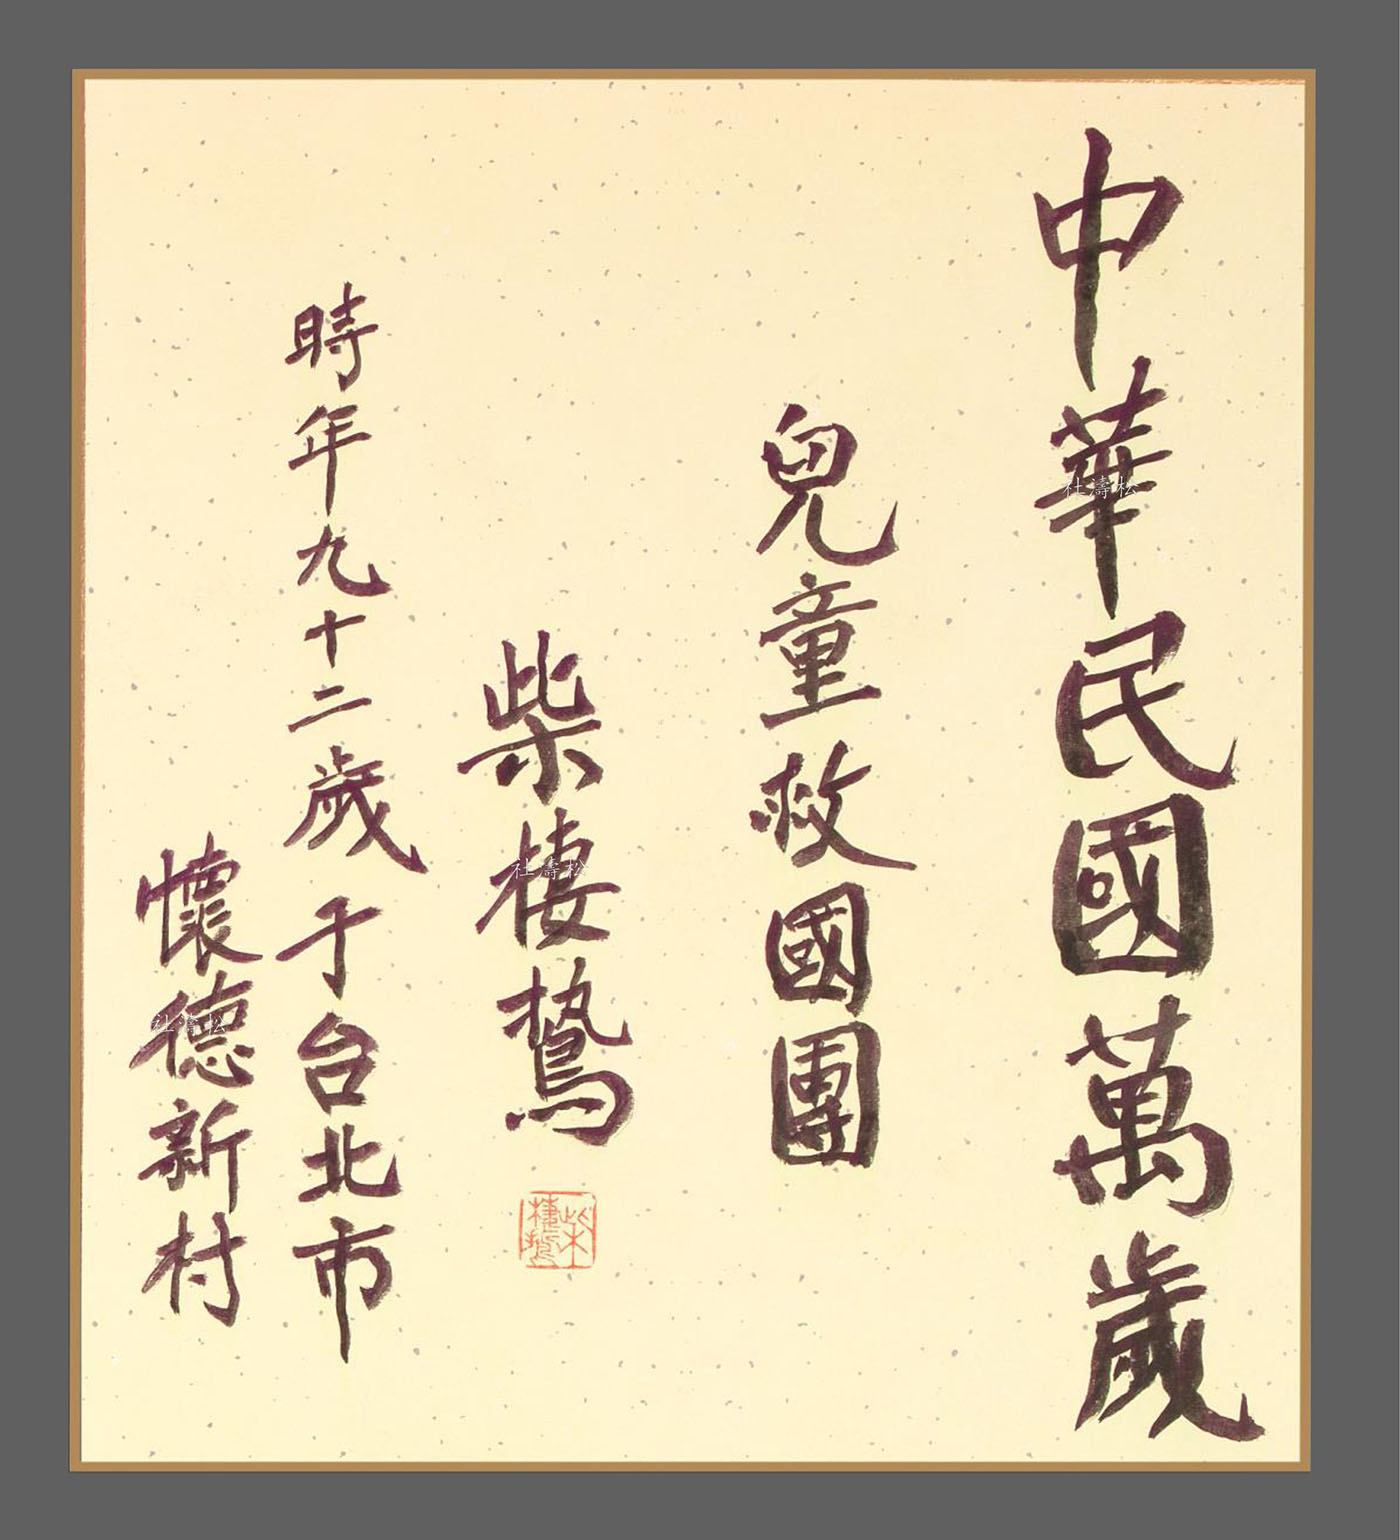 中華民國萬歲
兒童救國團
柴棲鷙
時年九十二歲于台北市
懷德新村
柴棲鷙
杜濤松
杜濤松
杜濤松